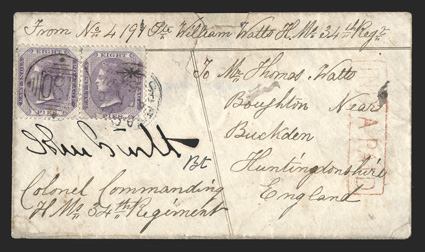 From No 4 197 Pte William Watts H. Ms 34th Regt
EIGHT
EIGHT
To Mr Thomas Watts
Boughton Near
Buckden
Huntingdonshire
England
Bt
Colonel Commanding
H Ms 34th Regiment